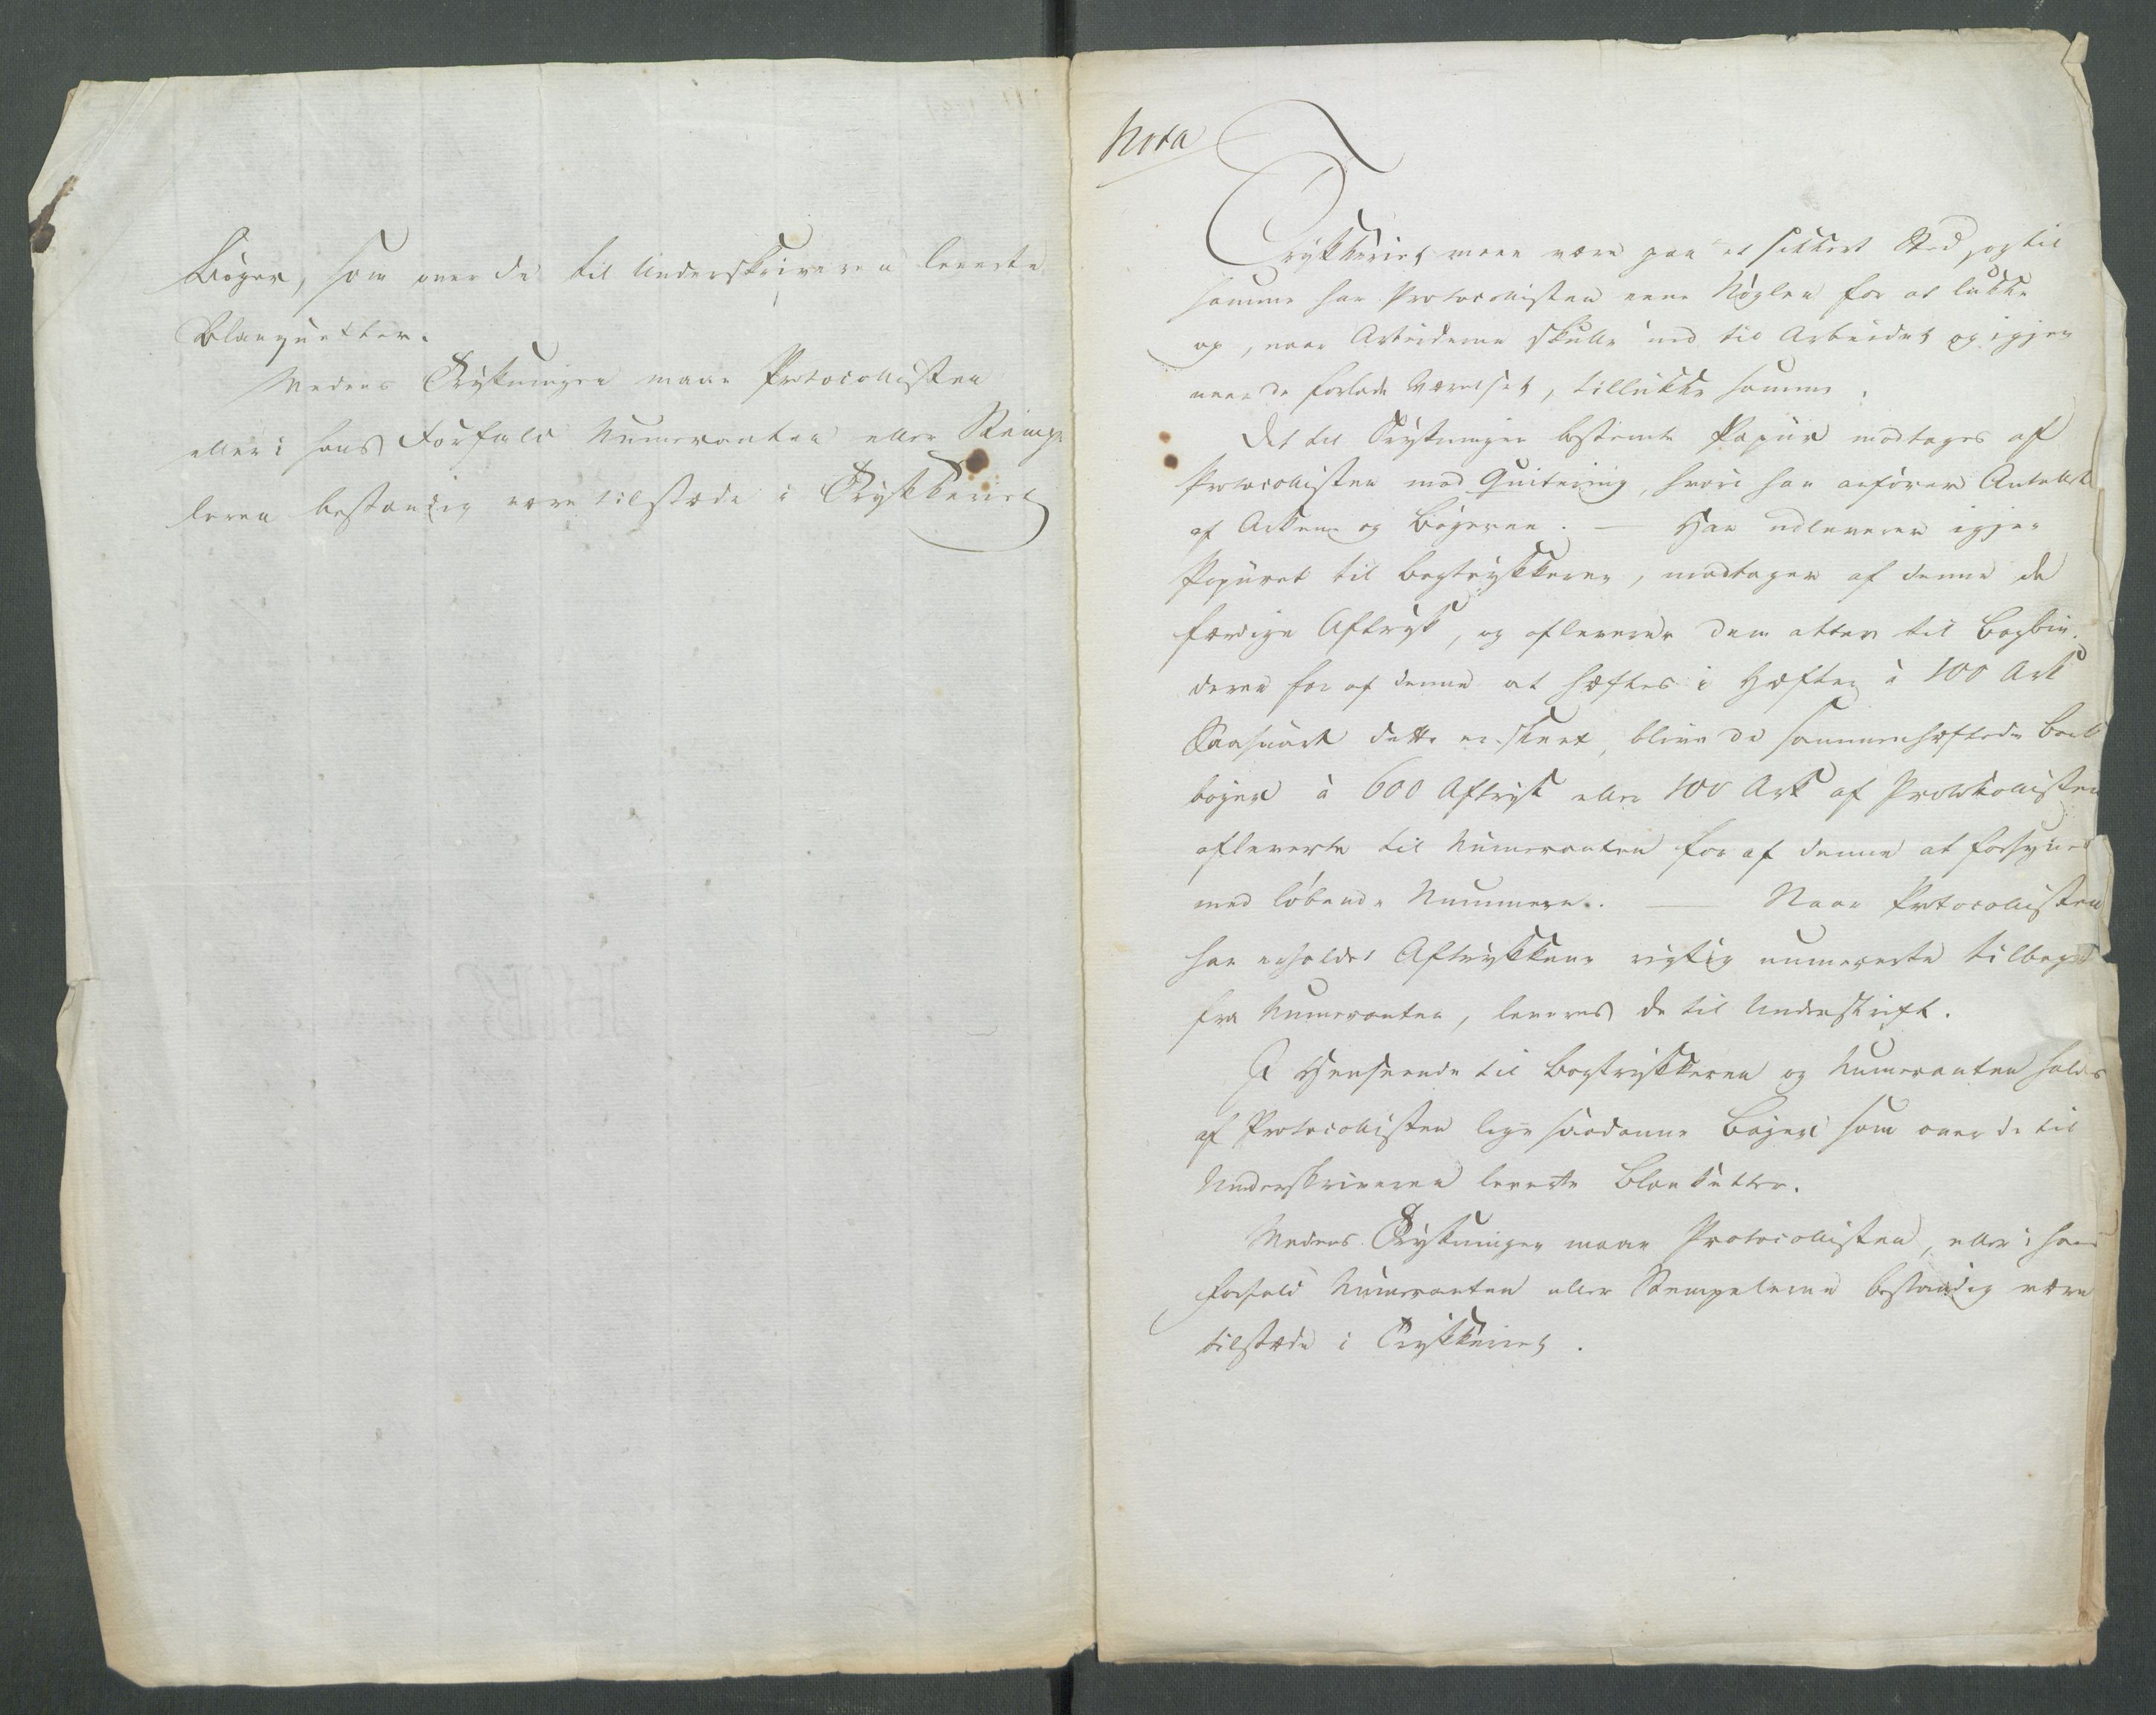 Bøger, som over de til Underskriveren leverte
Blanquetter.
Medens Trykningen maae Protocollisten
eller i hans Forfald Numeranten eller Stemp
leren bestandig være tilstæde i Trykkeriet
Nota
Trykkeriet maae være paa et sikkert Sted, og til
samme har Protocollisten ene Nøglen for at lukke
op, naar Arbeiderne skulle ind til Arbeidet og igjen
naar de forlade Værelset, tillukke samme.
Det til Trykningen bestemte Papiir modtages af
Protocollisten mod Quitering, hvori han anfører Antallet
af Arkene og Bøgerne. — Han udleverer igjen
Papiret til Bogtrykkeren, modtager af denne de
færdige Aftryk, og afleverer dem atter til Bogbin-
deren for af denne at hæftes i Hæfter à 100 Ark
Saasnart dette er skeet, blive de sammenhæftede
bøger à 600 Aftryk eller 100 Ark af Protokollisten
afleverte til Numeranten for af denne at forsynes
med løbende Nummere. — Naar Protocollisten
har erholdet Aftrykkene rigtig numererte tilbage
fra Numeranten, leveres de til Underskrift.
I Henseende til Bogtrykkeren og Numeranten holdes
af Protocollisten lige saadanne Bøger som over de til
Underskriveren leverte Blanketter.
Medens Trykningen maae Protocollisten, eller i hans
Forfald Numeranten eller Stempleren bestandig være
tilstæde i Trykkeriet.